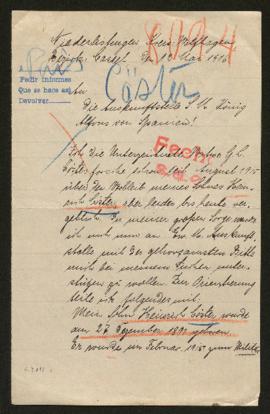 Niederlistingen Kreis Wolfhagen
Bezirk Cassel. Den 10 Mai 1916
Pedir informes
Que se hace así
Devolver
Cöster
An
Die Auskunftstelle S. M. König
Alfons von Spanien!
Fecho
Ich die Unterzeichnete
forsche schon seit August 1915
über den Verbleib meines Sohnes
Cöster aber leider bis heute ver-
geblich. In meiner grossen Sorge wende
ich mich nun an Ew. M. Auskunft-
stelle mit der gehorsamsten Bitte
mich bei meinem Suchen unter-
stützen zu wollen. Zur Orientierung
teile ich folgendes mit.
Mein Sohn Heinrich Cöster wurde
am 27 Dezember 1895 geboren.
Er wurde im Februar 1915 zum Militär